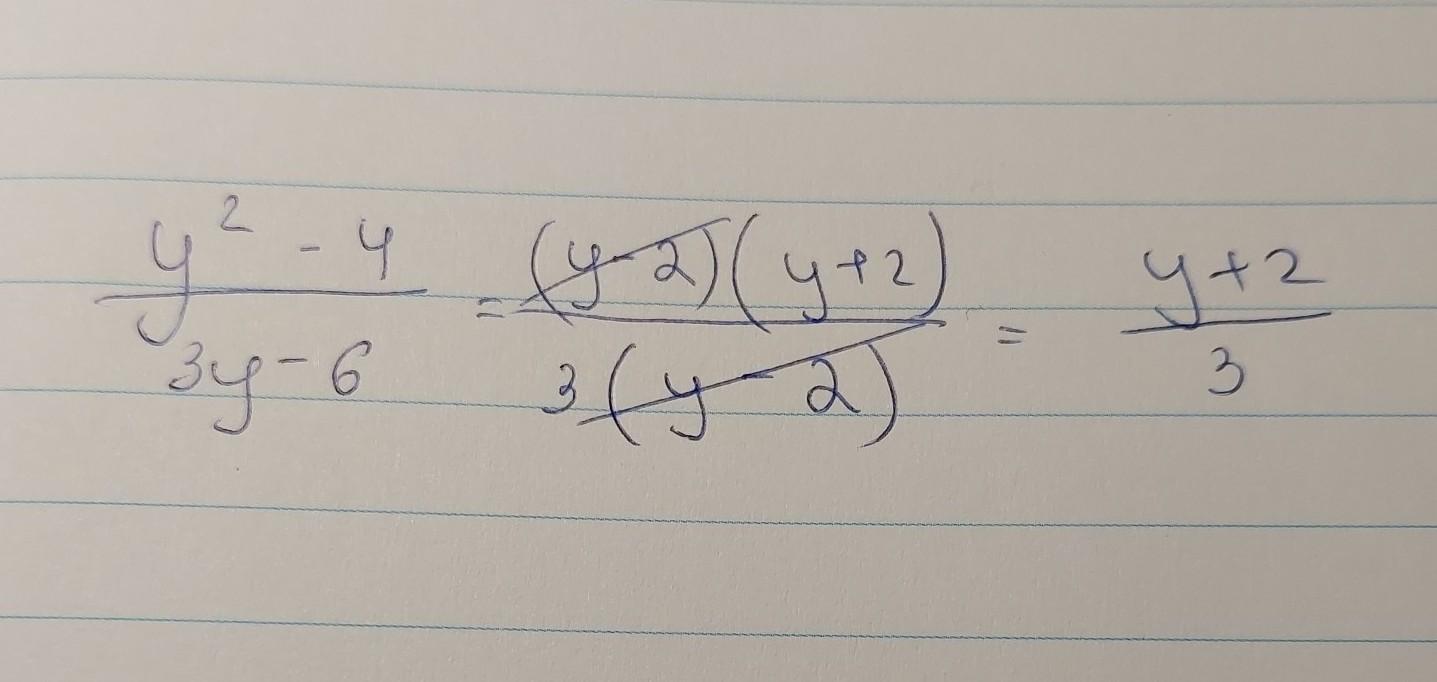 \frac{y^2 - 4}{3y - 6} = \frac{(y - 2)(y + 2)}{3(y - 2)} = \frac{y + 2}{3}